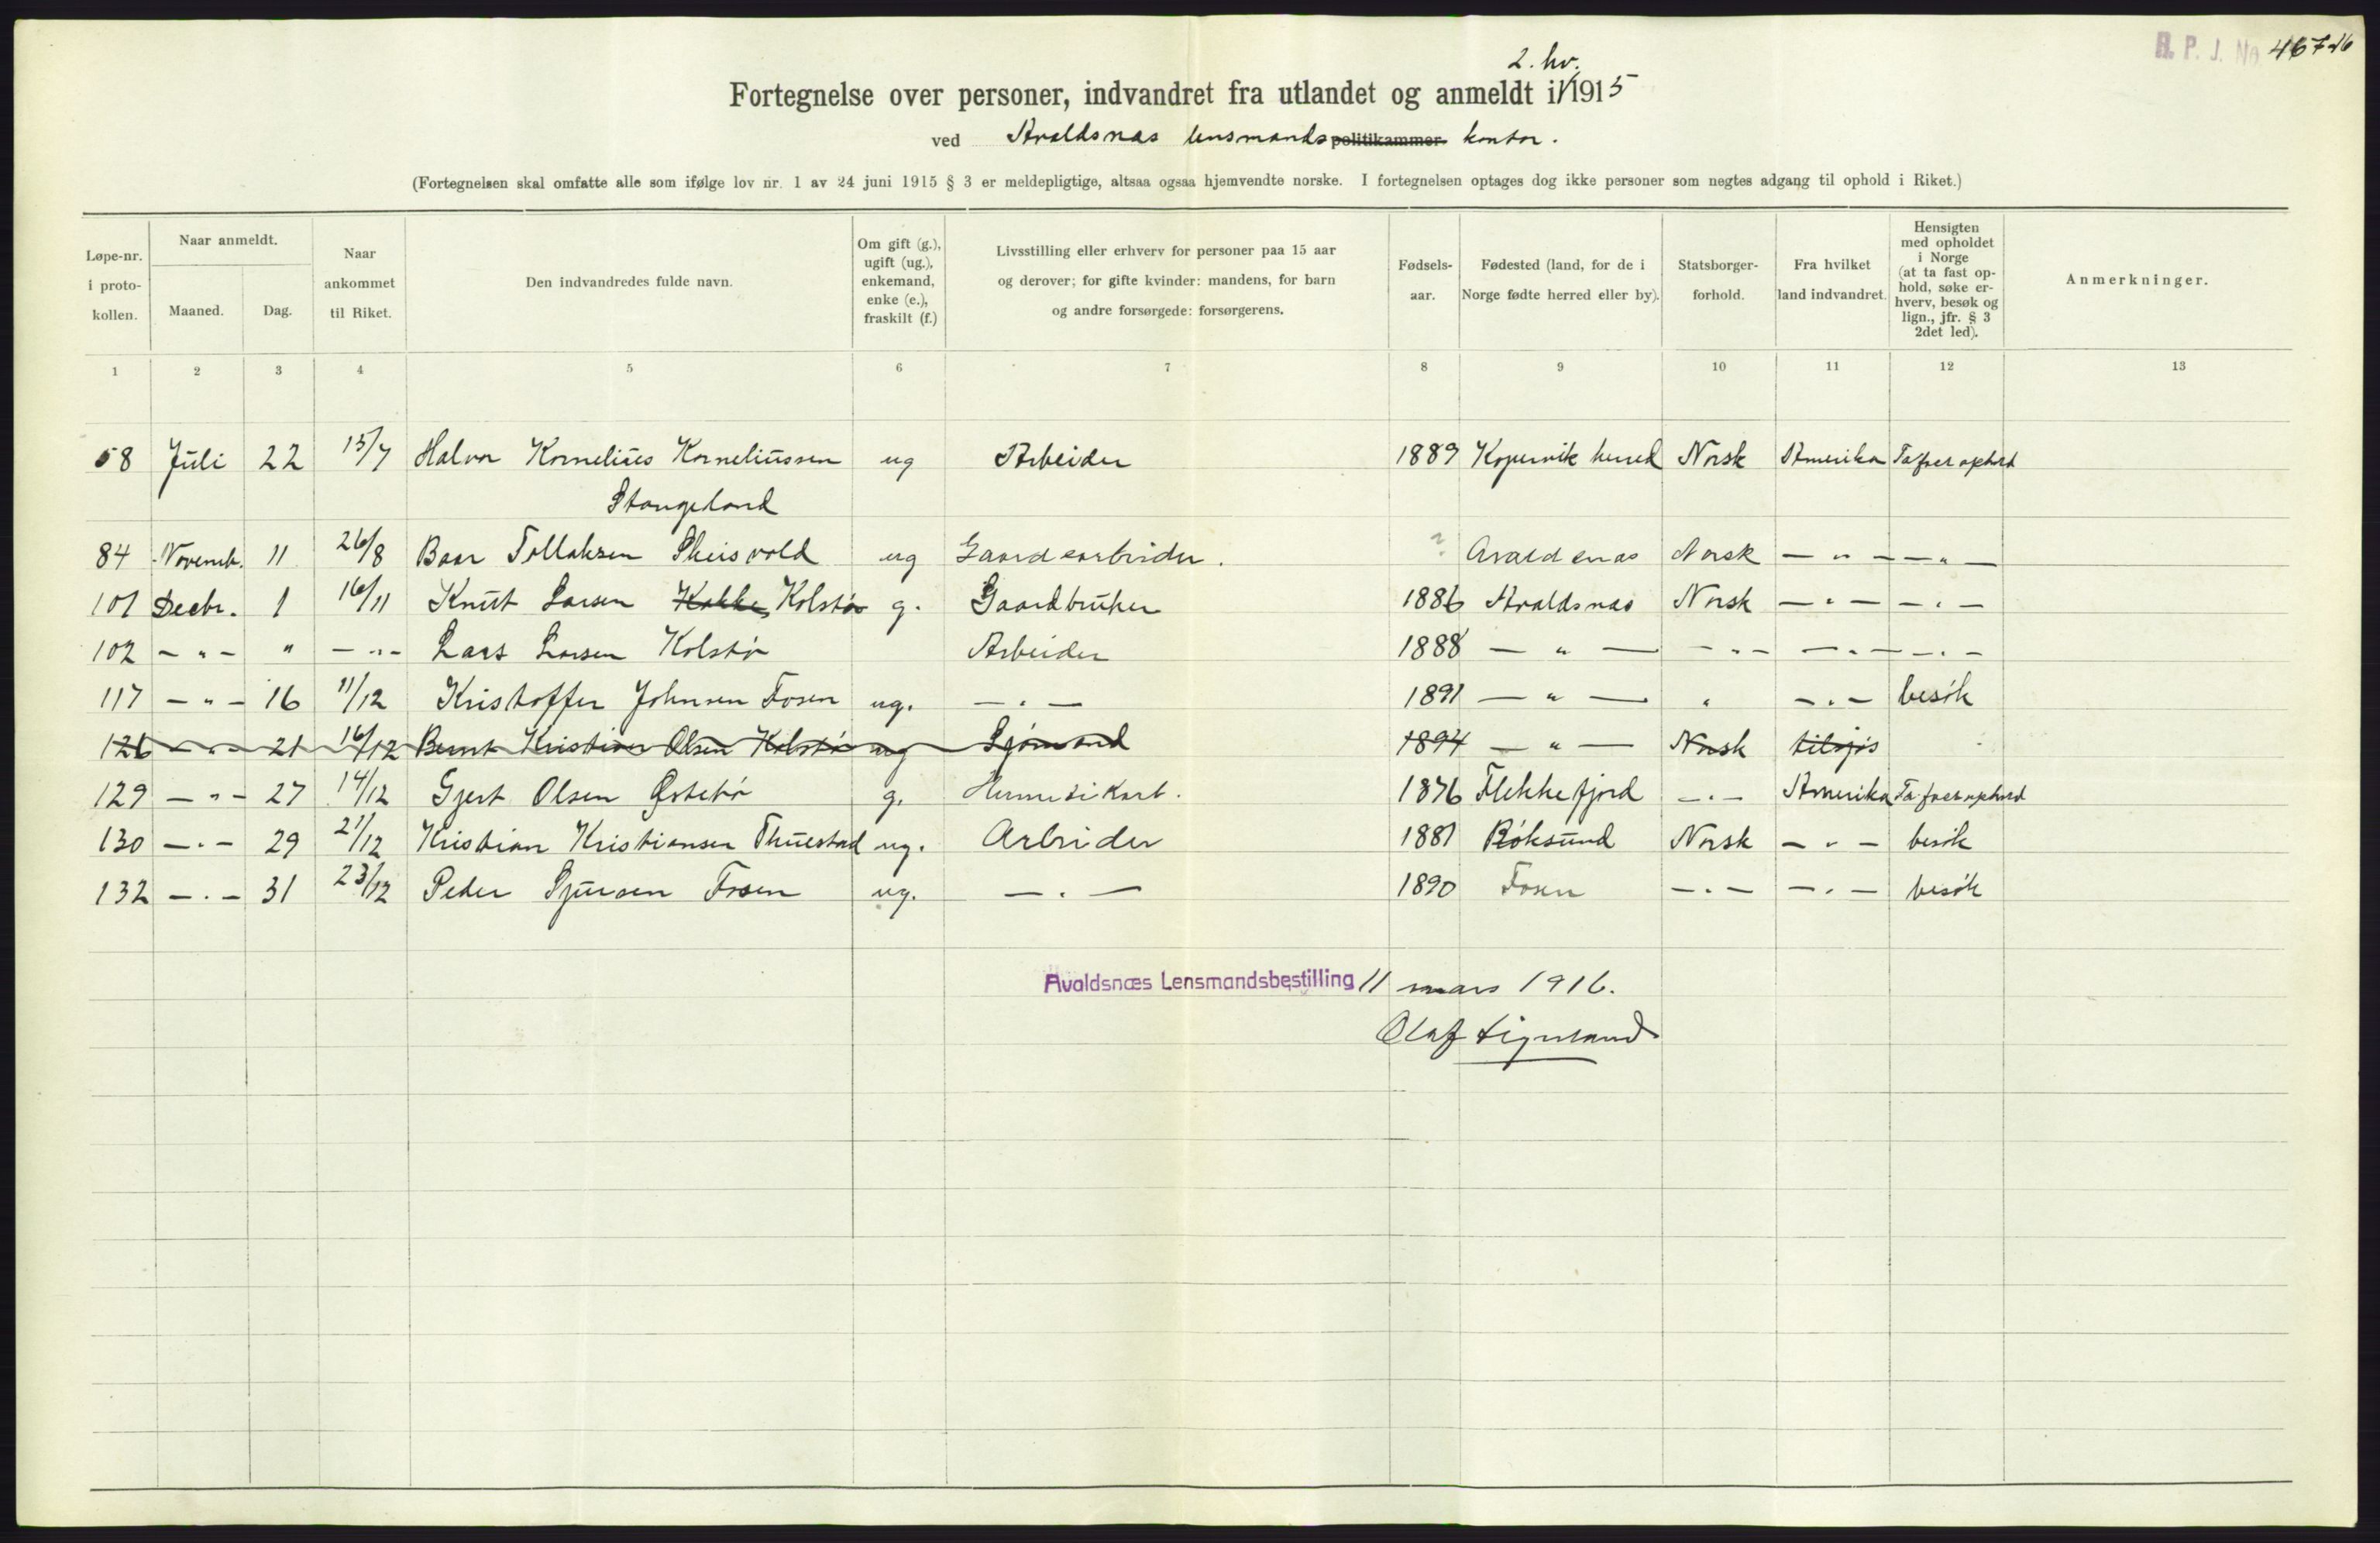 R. P. J. No. 467-16
2. hv.
Fortegnelse over personer, indvandret fra utlandet og anmeldt i 1915
ved Avaldsnæs lensmands politikammer kontor.
(Fortegnelsen skal omfatte alle som ifølge lov nr. 1 av 24 juni 1915 § 3 er meldepligtige, altsaa ogsaa hjemvendte norske. I fortegnelsen optages dog ikke personer som negtes adgang til ophold i Riket.)
Løpe-nr. i proto-kollen.
Naar anmeldt.
Maaned. Dag.
Naar ankommet til Riket.
Den indvandredes fulde navn.
Om gift (g.), ugift (ug.), enkemand, enke (e.), fraskilt (f.)
Livsstilling eller erhverv for personer paa 15 aar og derover; for gifte kvinder: mandens, for barn og andre forsørgede: forsørgerens.
Fødsels-aar.
Fødested (land, for de i Norge fødte herred eller by).
Statsborger-forhold.
Fra hvilket land indvandret.
Hensigten med opholdet i Norge (at ta fast op-hold, søke er-hverv, besøk og lign., jfr. § 3 2det led).
Anmerkninger.
1 2 3 4 5 6 7 8 9 10 11 12 13
58 Juli 22 15/7 Halvor Kornelius Korneliussen ug Arbeider 1889 Kopervik herred Norsk Amerika Ta fast ophold
Stangeland
84 Novemb. 11 26/8 Baar Tollaksen Skeisvold ug Gaardsarbeider. ? Avaldsnæs Norsk — " — — " —
101 Decbr. 1 16/11 Knut Larsen Kolstø g. Gaardbruker 1886 Avaldsnæs Norsk — " — — " —
102 — " — " — " — Lars Larsen Kolstø Arbeider 1888 — " — — " — — " — — " —
117 — " — 16 11/12 Kristoffer Johnsen Fosen ug. — " — 1891 — " — " — " — besøk
126 — " — 21 16/12 Bernt Kristian Olsen Kolstø ug Sjømand 1894 — " — Norsk tilsjøs
129 — " — 27 14/12 Gjert Olsen Østebø g. Hermetikarb. 1876 Flekkefjord — " — Amerika Ta fast ophold
130 — " — 29 21/12 Kristian Kristiansen Thuestad ug. Arbeider 1881 Røksund Norsk — " — besøk
132 — " — 31 23/12 Peder Sjursen Fosen ug. — " — 1890 Fosen — " — — " — besøk
Avaldsnæs Lensmandsbestilling 11 mars 1916.
Olaf